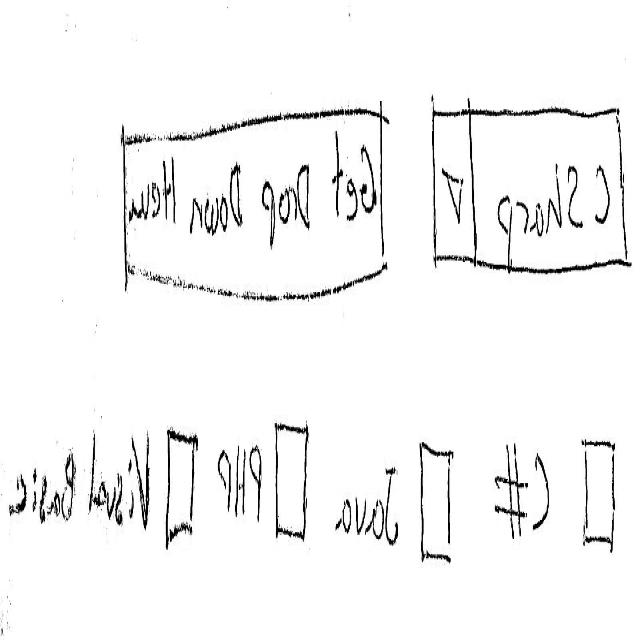 C Sharp V Get Drop Down Item
C# Java PHP Visual Basic